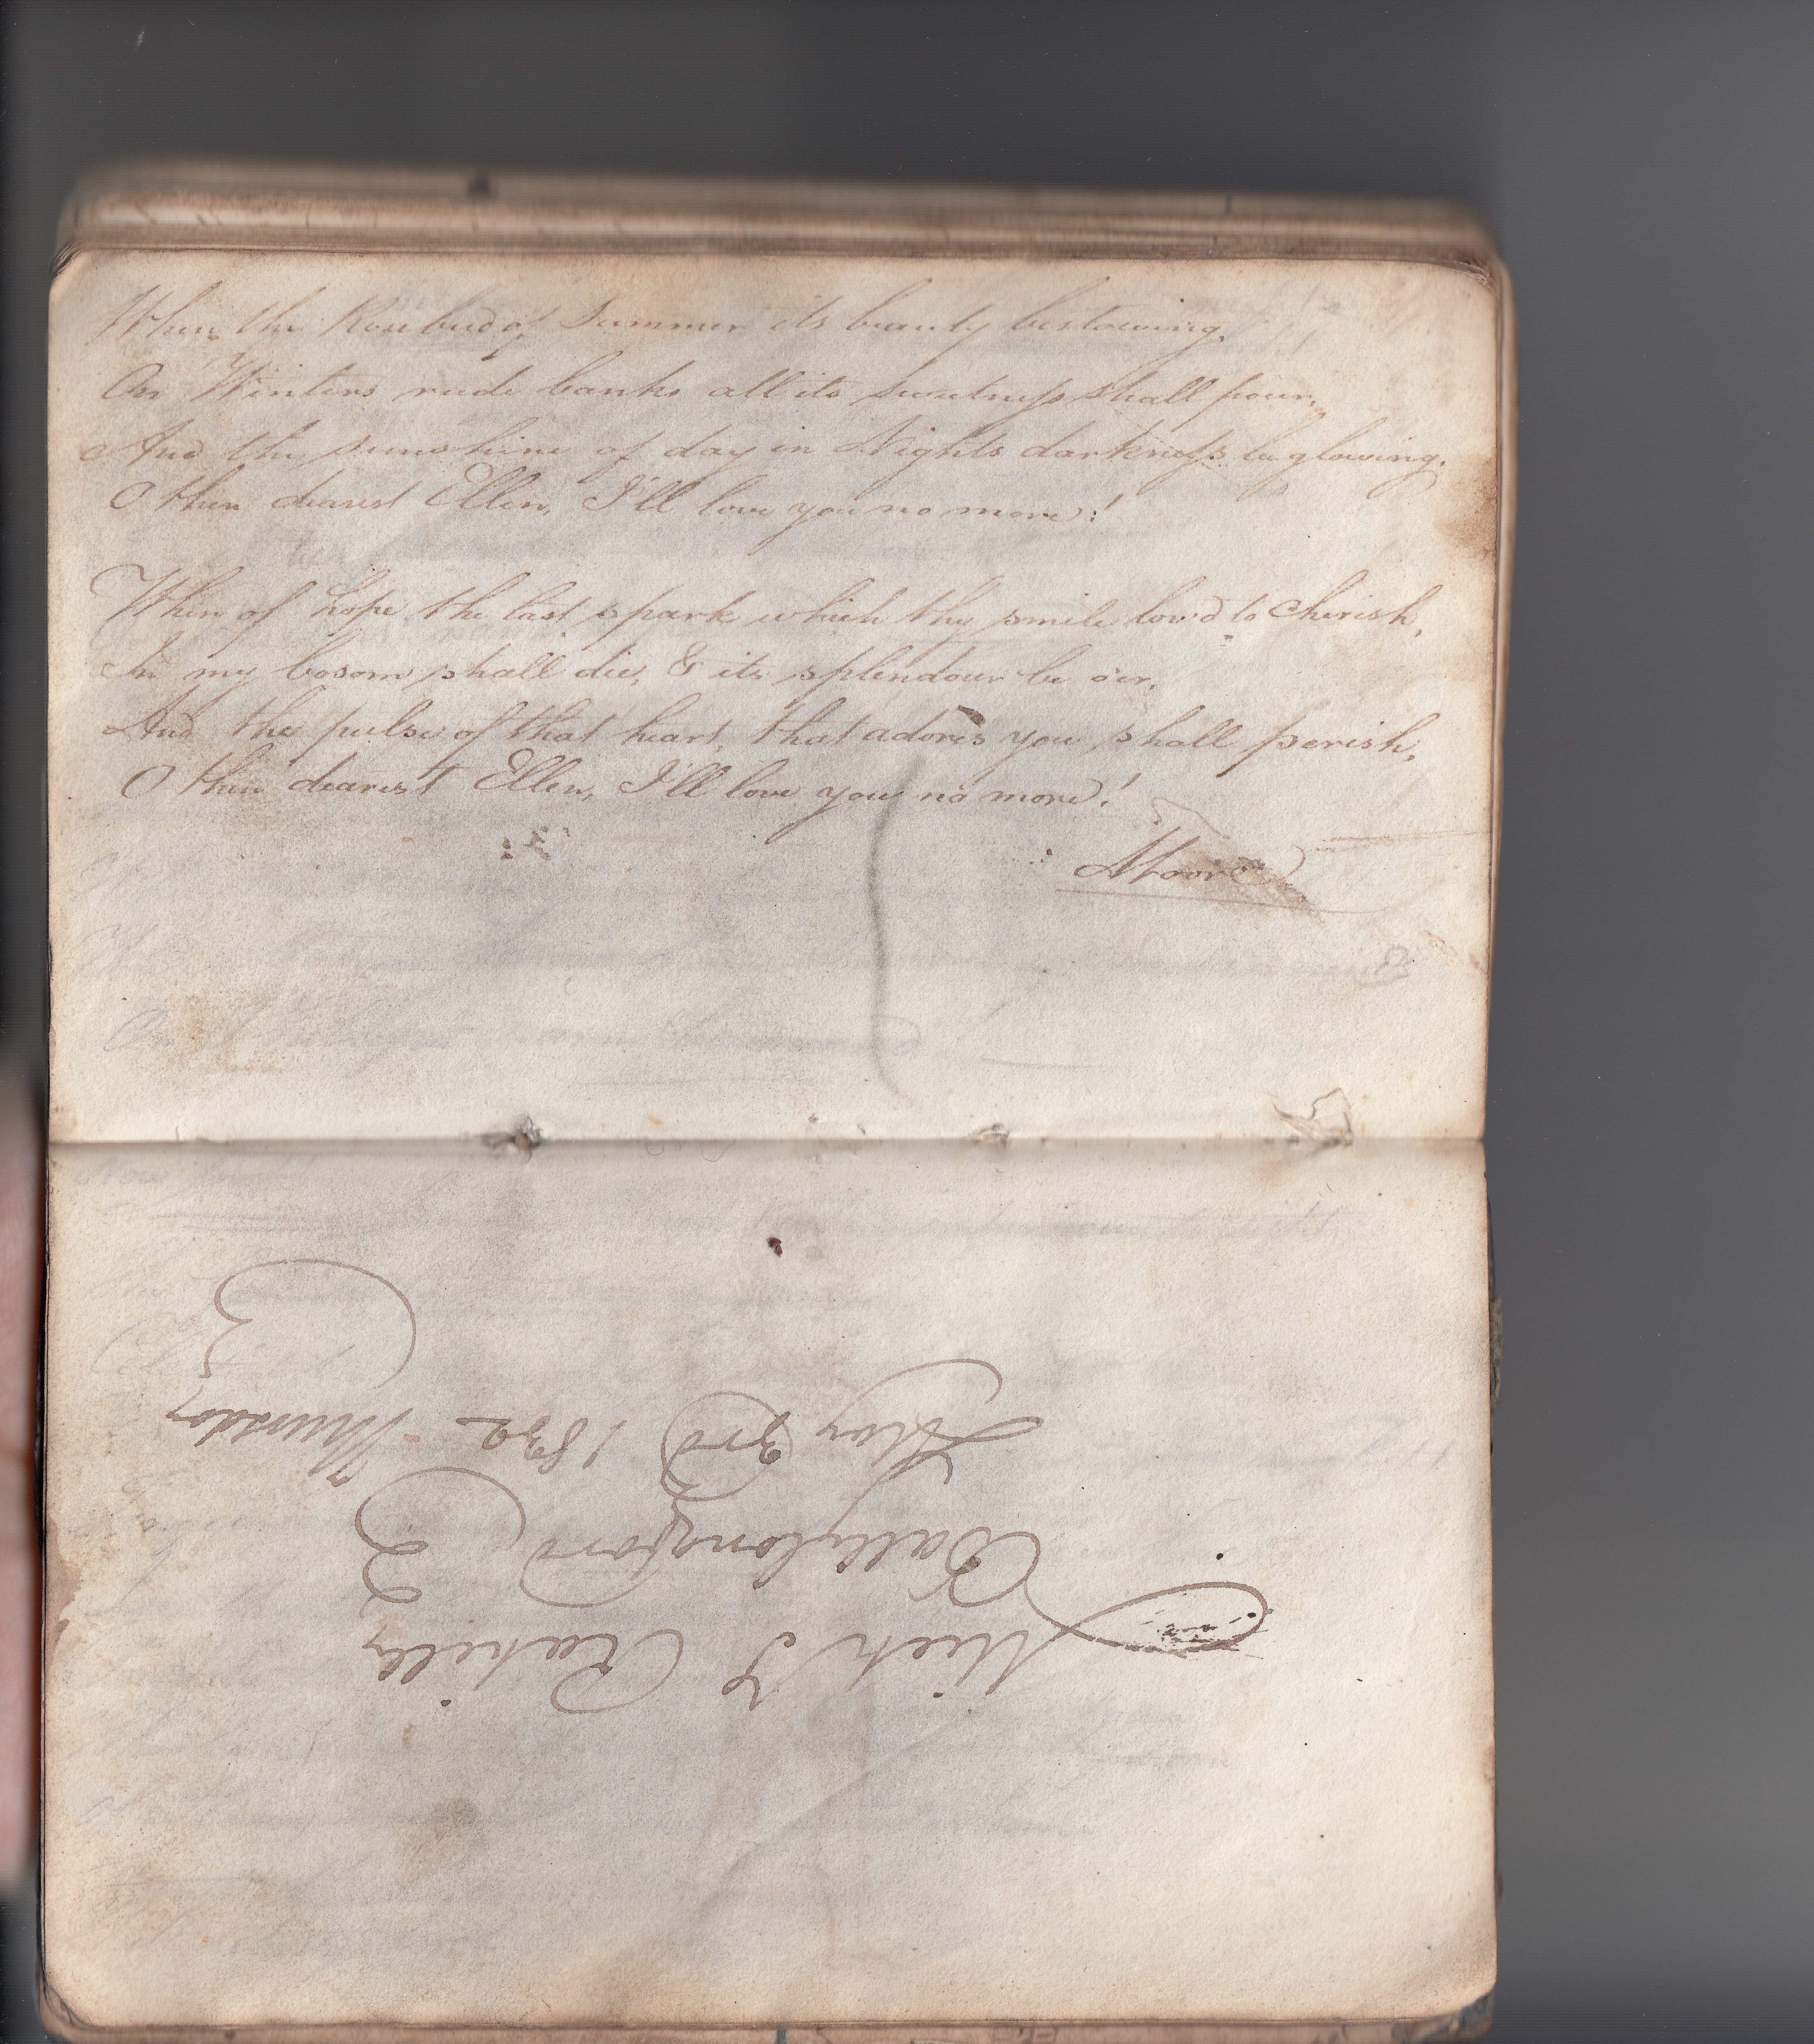 When the Rosebud of Summer its beauty bestowing,
On Winters rude banks all its sweetness shall pour,
And the sunshine of day in Nights darkness be glowing,
O then dearest Ellen, I'll love you no more!
When of hope the last spark which thy smile lov'd to cherish,
In my bosom shall die, & its splendour be o'er,
And the pulse of that heart, that adores you shall perish,
O then dearest Ellen, I'll love you no more!
Moore
Mich J Rahilly
Ballylongford
May 3rd 1832 Thursday